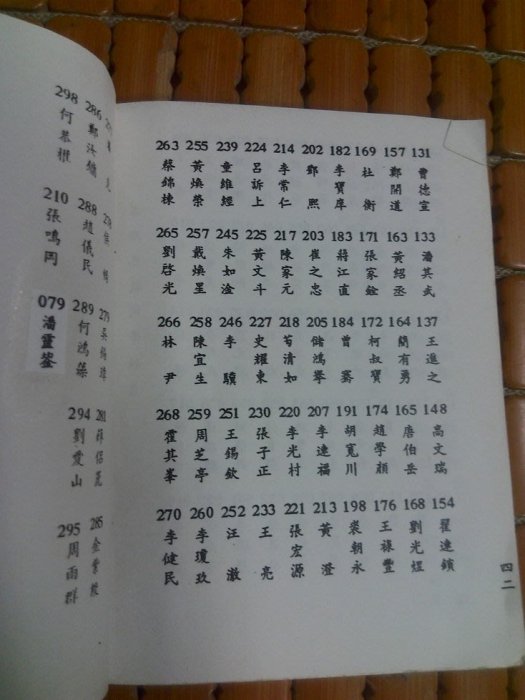 286 鄭
288 趙儀民
289 何鴻
294 劉愛山
295 周雨群
298 何
210 張鳴岡
079 潘靈
131 曹德宣
133 潘其武
137 王進之
148 高文瑞
154 翟連鎖
157 鄭開道
163 黃紹丞
164 簡有勇
165 唐伯岳
168 劉光煜
169 杜衡
171 張家銓
172 柯叔寶
174 趙學顏
176 王祿豐
182 李寶岸
183 蔣江直
184 曾騫
191 胡寬川
198 裴朝永
202 鄧熙
203 崔之忠
205 儲鴻舉
207 李達福
213 黃澄
214 李常仁
217 陳家元
218 荀清如
220 李光村
221 張宏源
224 呂訢上
225 黃文斗
227 史耀東
230 張子正
233 王亮
239 童維經
245 朱如淦
246 李驥
251 王錫欽
252 汪澈
255 黃煥榮
257 戴煥星
258 陳宜生
259 周芝亭
260 李瓊玖
263 蔡錦棟
265 劉啓光
266 林尹
268 霍其峯
270 李健民
四二